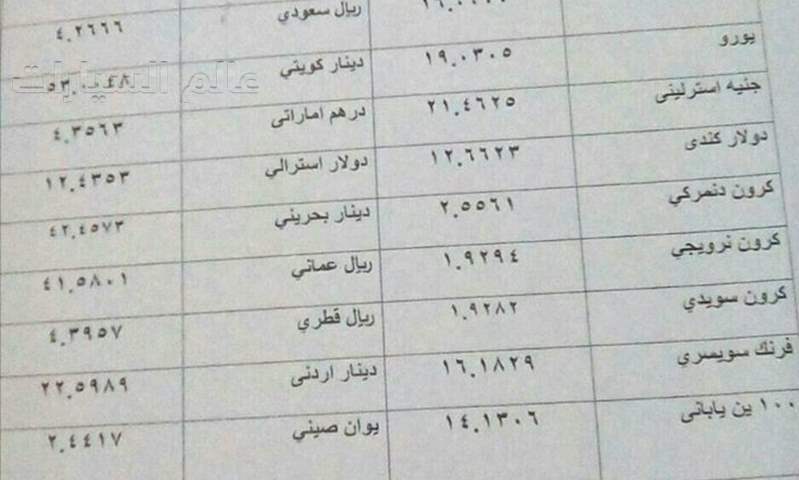 ريال سعودي ٤.٢٦٦٦
يورو ١٩.٠٣٠٥ دينار كويتي
عالم السيارات
جنيه استرلينى ٢١.٤٦٢٥ درهم اماراتى ٤.٣٥٦٣
دولار كندى ١٢.٦٦٢٣ دولار استرالي ١٢.٤٣٥٣
كرون دنمركي ٢.٥٥٦١ دينار بحريني ٤٢.٤٥٧٣
كرون نرويجي ١.٩٢٩٤ ريال عماني ٤١.٥٨٠١
كرون سويدي ١.٩٢٨٢ ريال قطري ٤.٣٩٥٧
فرنك سويسري ١٦.١٨٢٩ دينار اردنى ٢٢.٥٩٨٩
١٠٠ ين يابانى ١٤.١٣٠٦ يوان صيني ٢.٤٤١٧